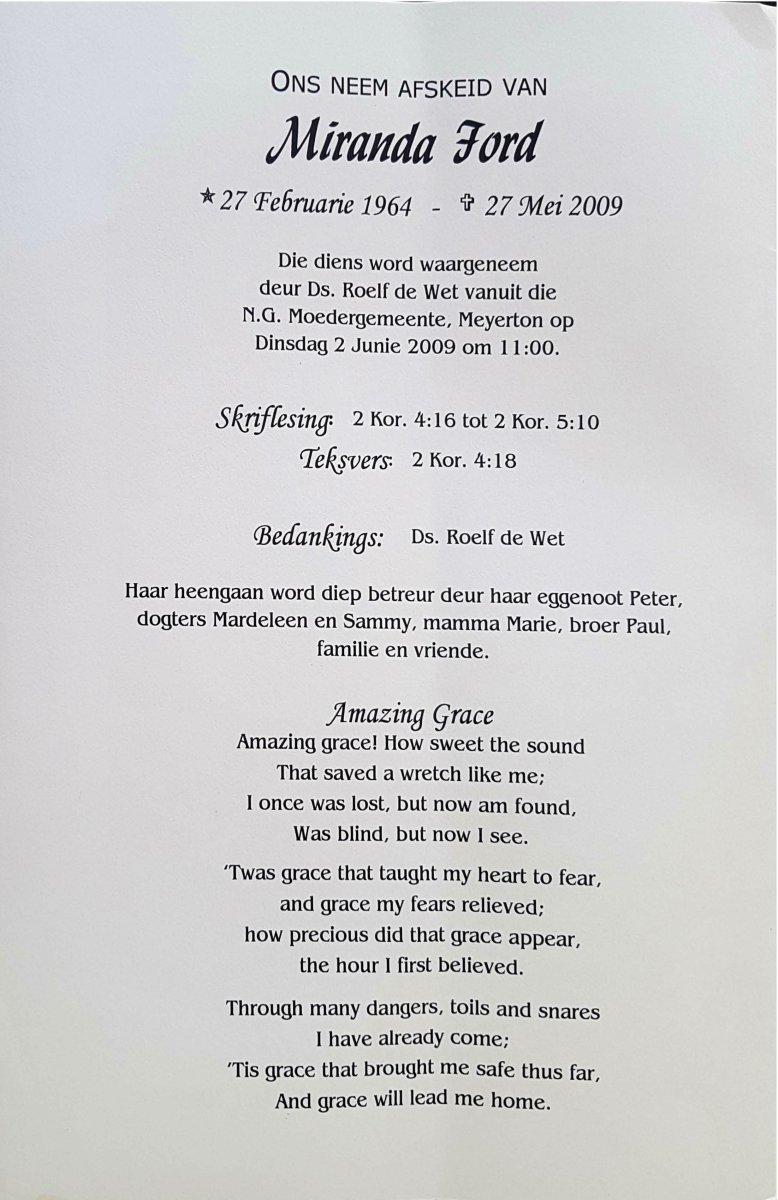 ONS NEEM AFSKEID VAN
Miranda Ford
✯ 27 Februarie 1964 - ✞ 27 Mei 2009
Die diens word waargeneem
deur Ds. Roelf de Wet vanuit die
N.G. Moedergemeente, Meyerton op
Dinsdag 2 Junie 2009 om 11:00.
Skriflesing: 2 Kor. 4:16 tot 2 Kor. 5:10
Teksvers: 2 Kor. 4:18
Bedankings: Ds. Roelf de Wet
Haar heengaan word diep betreur deur haar eggenoot Peter,
dogters Mardeleen en Sammy, mamma Marie, broer Paul,
familie en vriende.
Amazing Grace
Amazing grace! How sweet the sound
That saved a wretch like me;
I once was lost, but now am found,
Was blind, but now I see.
'Twas grace that taught my heart to fear,
and grace my fears relieved;
how precious did that grace appear,
the hour I first believed.
Through many dangers, toils and snares
I have already come;
'Tis grace that brought me safe thus far,
And grace will lead me home.